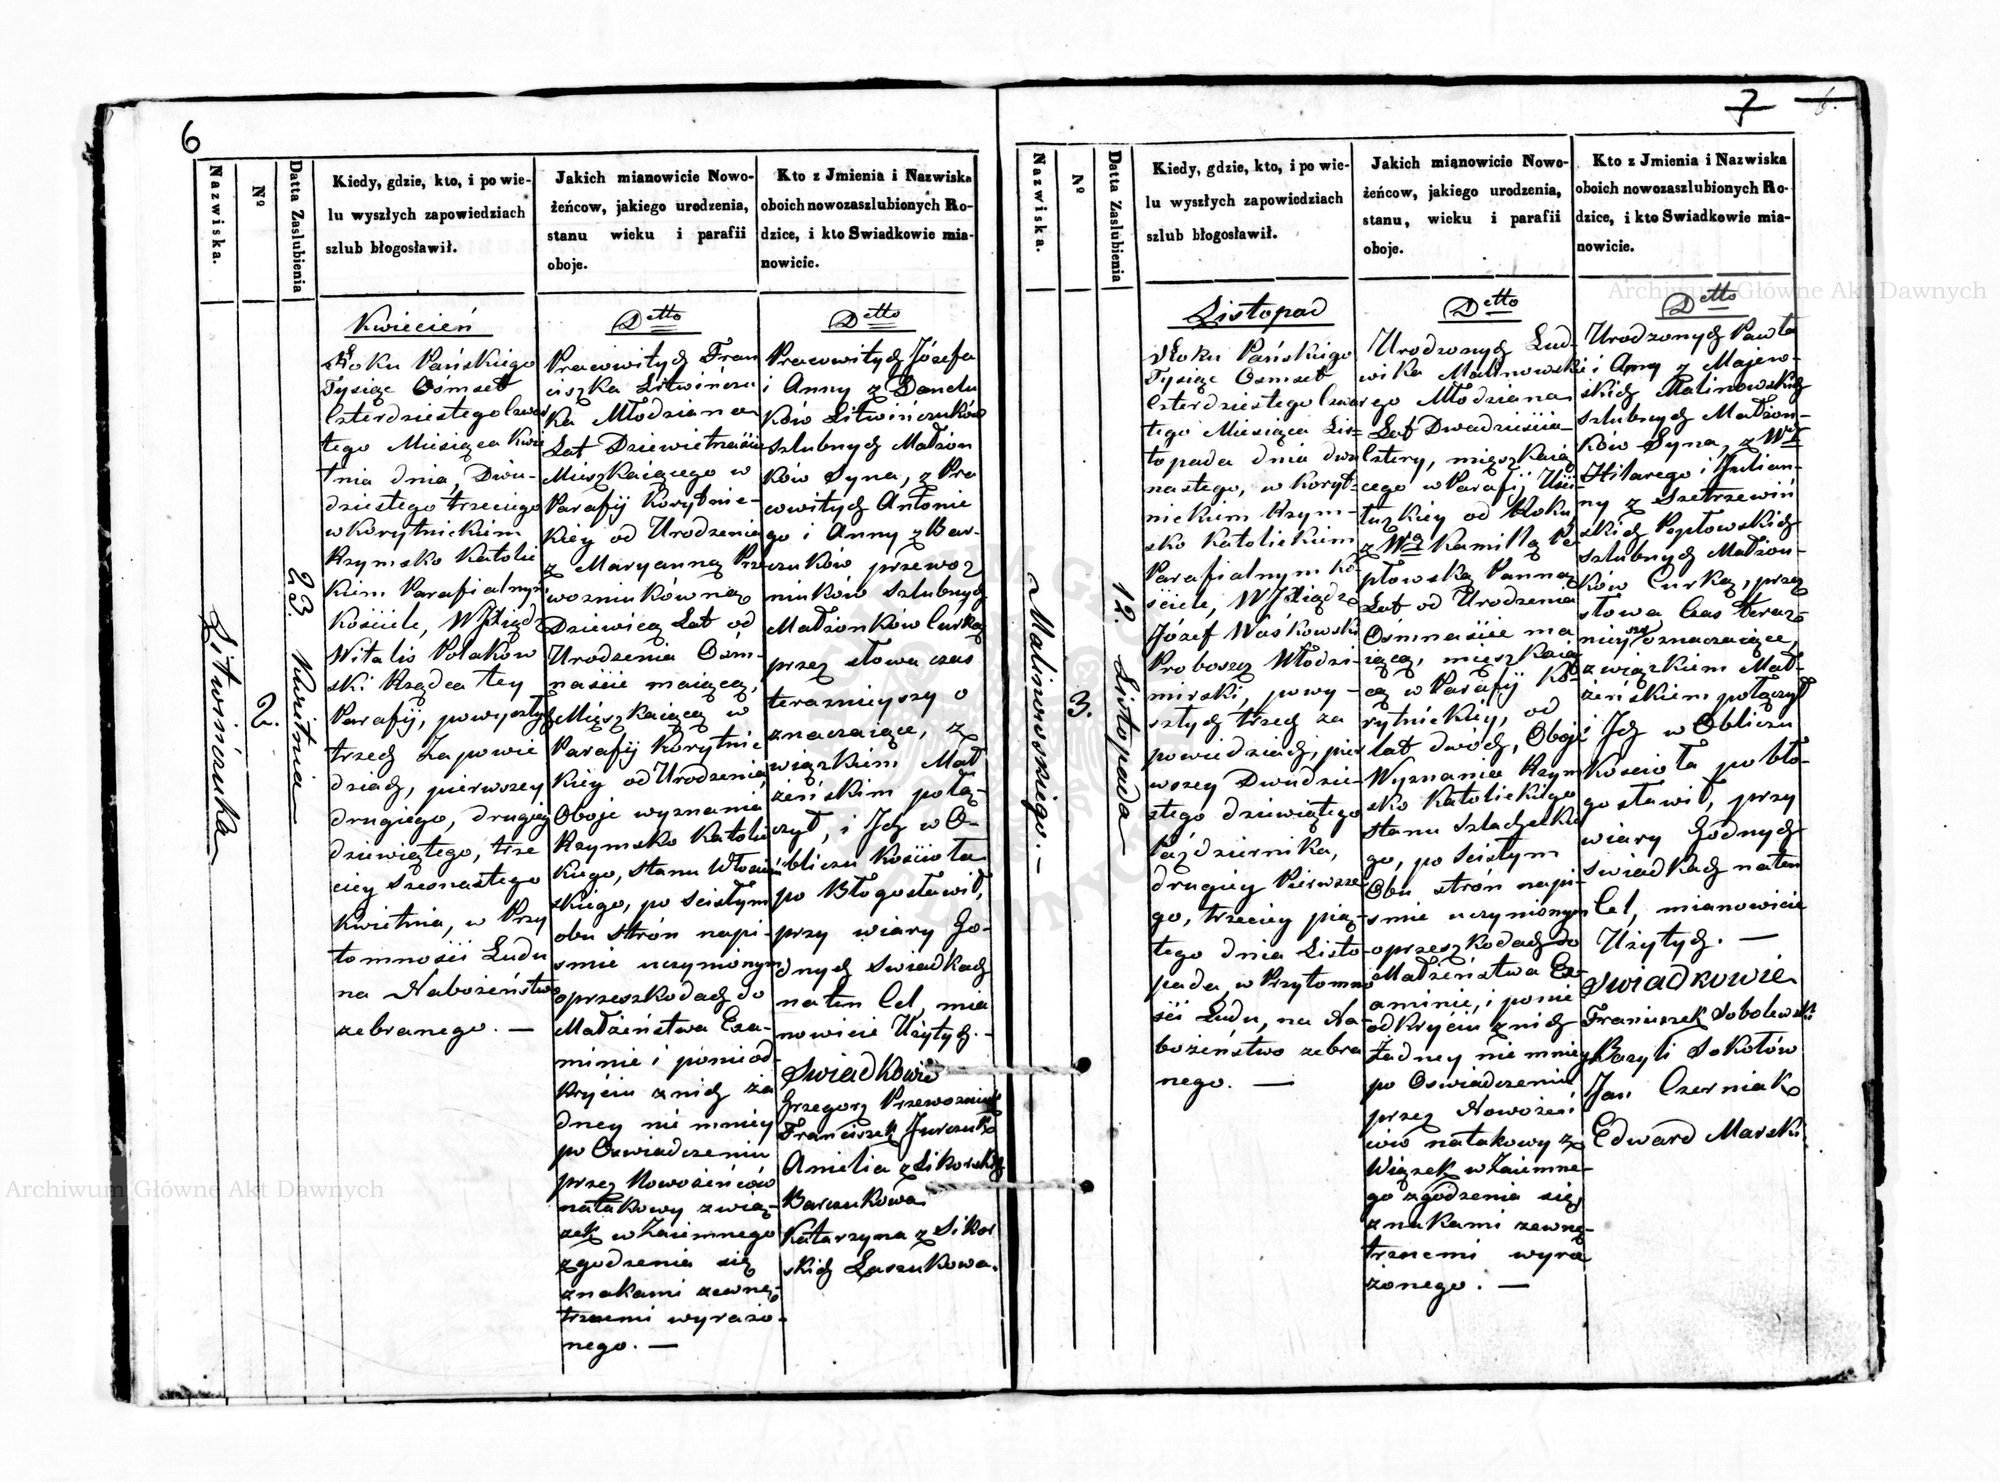 6
Nazwiska.
Nº
Datta Zaslubienia
Kiedy, gdzie, kto, i po wie-
lu wyszłych zapowiedziach
szlub błogosławił.
Jakich mianowicie Nowo-
żeńcow, jakiego urodzenia,
stanu wieku i parafii
oboje.
Kto z Jmienia i Nazwiska
oboich nowozaszlubionych Ro-
dzice, i kto Swiadkowie mia-
nowicie.
Litwińczuka
2.
23. Kwietnia
Kwiecień
Roku Pańskiego
Tysiąc Ośmset
Czterdziestego Czwar
tego Miesiąca Kwie
tnia dnia, Dwu-
dziestego trzeciego
w Korytnickim
Rzymsko Katolic
kim Parafialnym
Kościele, W JXiądz
Witalis Polakow
ski Rządca tey
Parafij, powyszłych
trzech Zapowie
dziach, pierwszey
drugiego, drugiey
dziewiątego, trze
ciey szesnastego
Kwietnia, w Przy
tomności Ludu
na Nabożeństwo
zebranego. —
Detto
Pracowitych Fran
ciszka Litwińczu
ka Młodziana
Lat Dziewietnaście
Mieszkaiącego w
Parafij Korytnic-
kiey od Urodzenia
z Maryanną Prze
wozniukówną
Dziewicą Lat od
Urodzenia Ośm-
naście maiącą,
Mięszkaiącą w
Parafij Korytnic
kiey od Urodzenia
Oboje wyznania
Rzymsko Katolic
kiego, stanu Włościań
skiego, po scisłym
obu strón napi-
smie uczynionym
o przeszkodach do
Małżeństwa Exa-
minie i ponieod-
kryciu z nich ża
dney nie mniey
po Oswiadczeniu
przez Nowożeńców
natakowy zwią-
zek w Zaiemnego
zgodzenia się
znakami zewnę-
trznemi wyrażo-
nego. —
Detto
Pracowitych Józefa
i Anny z Danilu
ków Litwińczuków
szlubnych Małżon
ków Syna, z Pra
cowitych Antonie
go i Anny z Bar-
czuków przewoz
niuków szlubnych
Małżonków Curką
przez słowa czas
teraznieyszy o
znaczaiące, z
wiązkiem Mał
żeńskim połą-
czył, i Jch w O-
bliczu Kościoła
po Błogosławił,
przy wiary Go-
dnych swiadkach
naten Cel, mia
nowicie Użytych. -
Swiadkowie
Grzegorz Przewozniuk
Franciszek Jurczuk
Amelia z Sikorskich
Barczukowa
Katarzyna z Sikor
skich Łaszukowa.
7
6.
Nazwiska.
Nº
Datta Zaslubienia
Kiedy, gdzie, kto, i po wie-
lu wyszłych zapowiedziach
szlub błogosławił.
Jakich mianowicie Nowo-
żeńcow, jakiego urodzenia,
stanu, wieku i parafii
oboje.
Kto z Jmienia i Nazwiska
oboich nowozaszlubionych Ro-
dzice, i kto Swiadkowie mia-
nowicie.
Malinowskiego. —
3.
12. Listopada
Listopad
Roku Pańskiego
Tysiąc Osmset
Czterdziestego Czwar
tego Miesiąca Lis=
topada dnia dwu
nastego, w Koryt-
nickim Rzym-
sko Katolickim
Parafialnym Ko-
ściele, W JXiądz
Józef Waśkowski
Proboszcz Włodzi-
mirski, powy-
szłych trzech za
powiedziach, pier
wszey Dwudzie-
stego dziewiątego
Października,
drugiey Pierwsze-
go, trzeciey pią-
tego dnia Listo
pada, w Przytomno
ści Ludu, na Na-
bożeństwo zebra
nego. —
Detto
Urodzonych Lud-
wika Malinowski
ego Młodziana
Lat Dwadzieścia
Cztery, mięszkaią
cego w Parafij Uści-
łuzkiey od Roku
z Wą Kamillą Pe
płowską Panną
Lat od Urodzenia
Ośmnaście ma
iącą, mięszkaią
cą w Parafij Ko
rytnickiey, od
lat dwóch, Oboje
Wyznania Rzym
sko Katolickiego
stanu Szlachecki
go, po scisłym
Obu strón napi-
smie uczynionym
o przeszkodach do
Małżeństwa Ex-
aminie, i ponie
odkryciu z nich
żadney nie mniey
po Oswiadczeniu
przez Nowożeń
ców natakowy z
Wiązek w Zaiemne-
go zgodzenia się
znakami zewnę-
trznemi wyra
żonego. —
Detto
Urodzonych Pawła
i Anny z Majew-
skich Malinowskich
szlubnych Małżon-
ków Syna, z Wch
Hilarego i Julian-
ny z Szetrzewiń
skich Pepłowskich
szlubnych Małżon-
ków Curką, przez
słowa Czas teraz-
nieyszy oznaczaiące,
związkiem Mał-
żeńskiem połączył
i Jch w Obliczu
Kościoła po bło-
gosławił, przy
wiary Godnych
swiadkach naten
Cel, mianowicie
Użytych. —
Swiadkowie
Franciszek Sobolewski
Bazyli Sokołów
Jan Czerniak
Edward Marski.
Archiwum Główne Akt Dawnych
Archiwum Główne Akt Dawnych